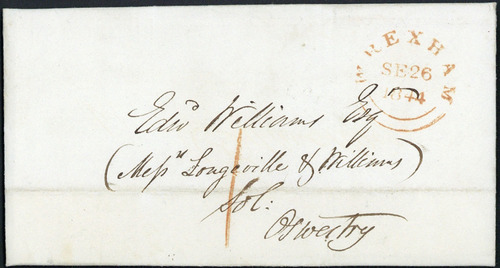 WREXHAM
SE 26
1844
Edwd Williams Esq
(Messrs Longeville & Williams)
Sol:
Oswestry
1